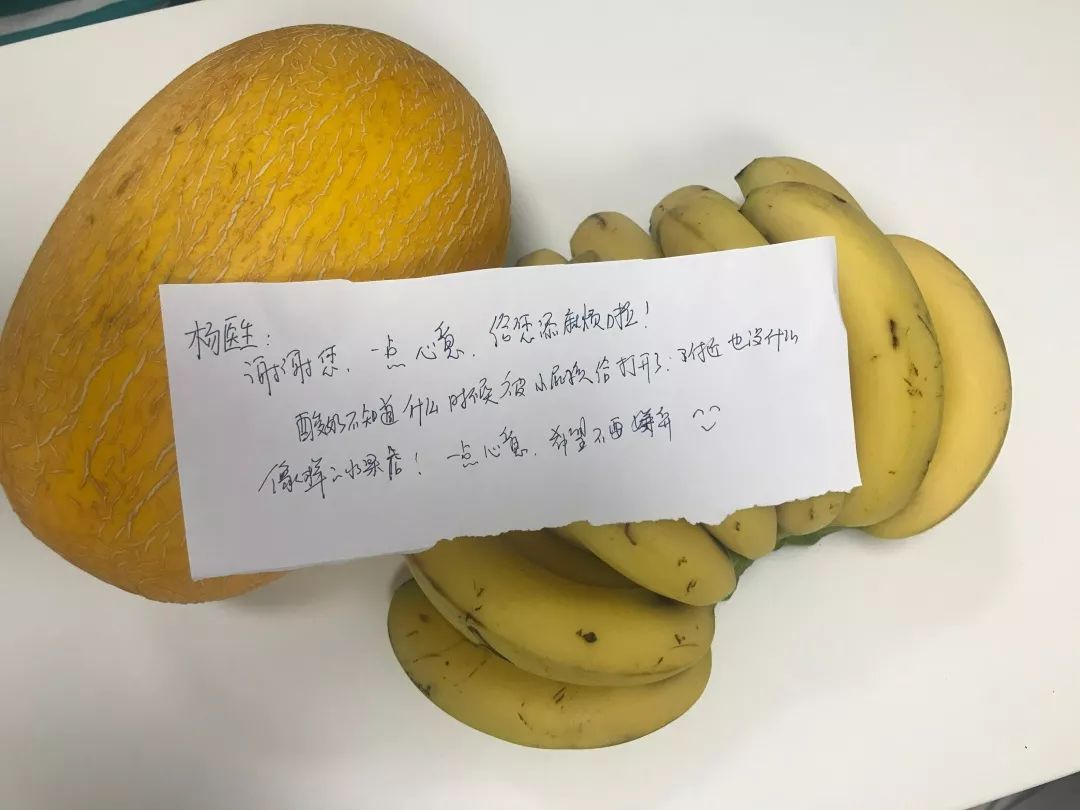 杨医生:
谢谢您,一点心意,给您添麻烦啦!
酸奶不知道什么时候被小屁孩给打开了:附近也没什么
像样的水果店!一点心意,希望不要嫌弃